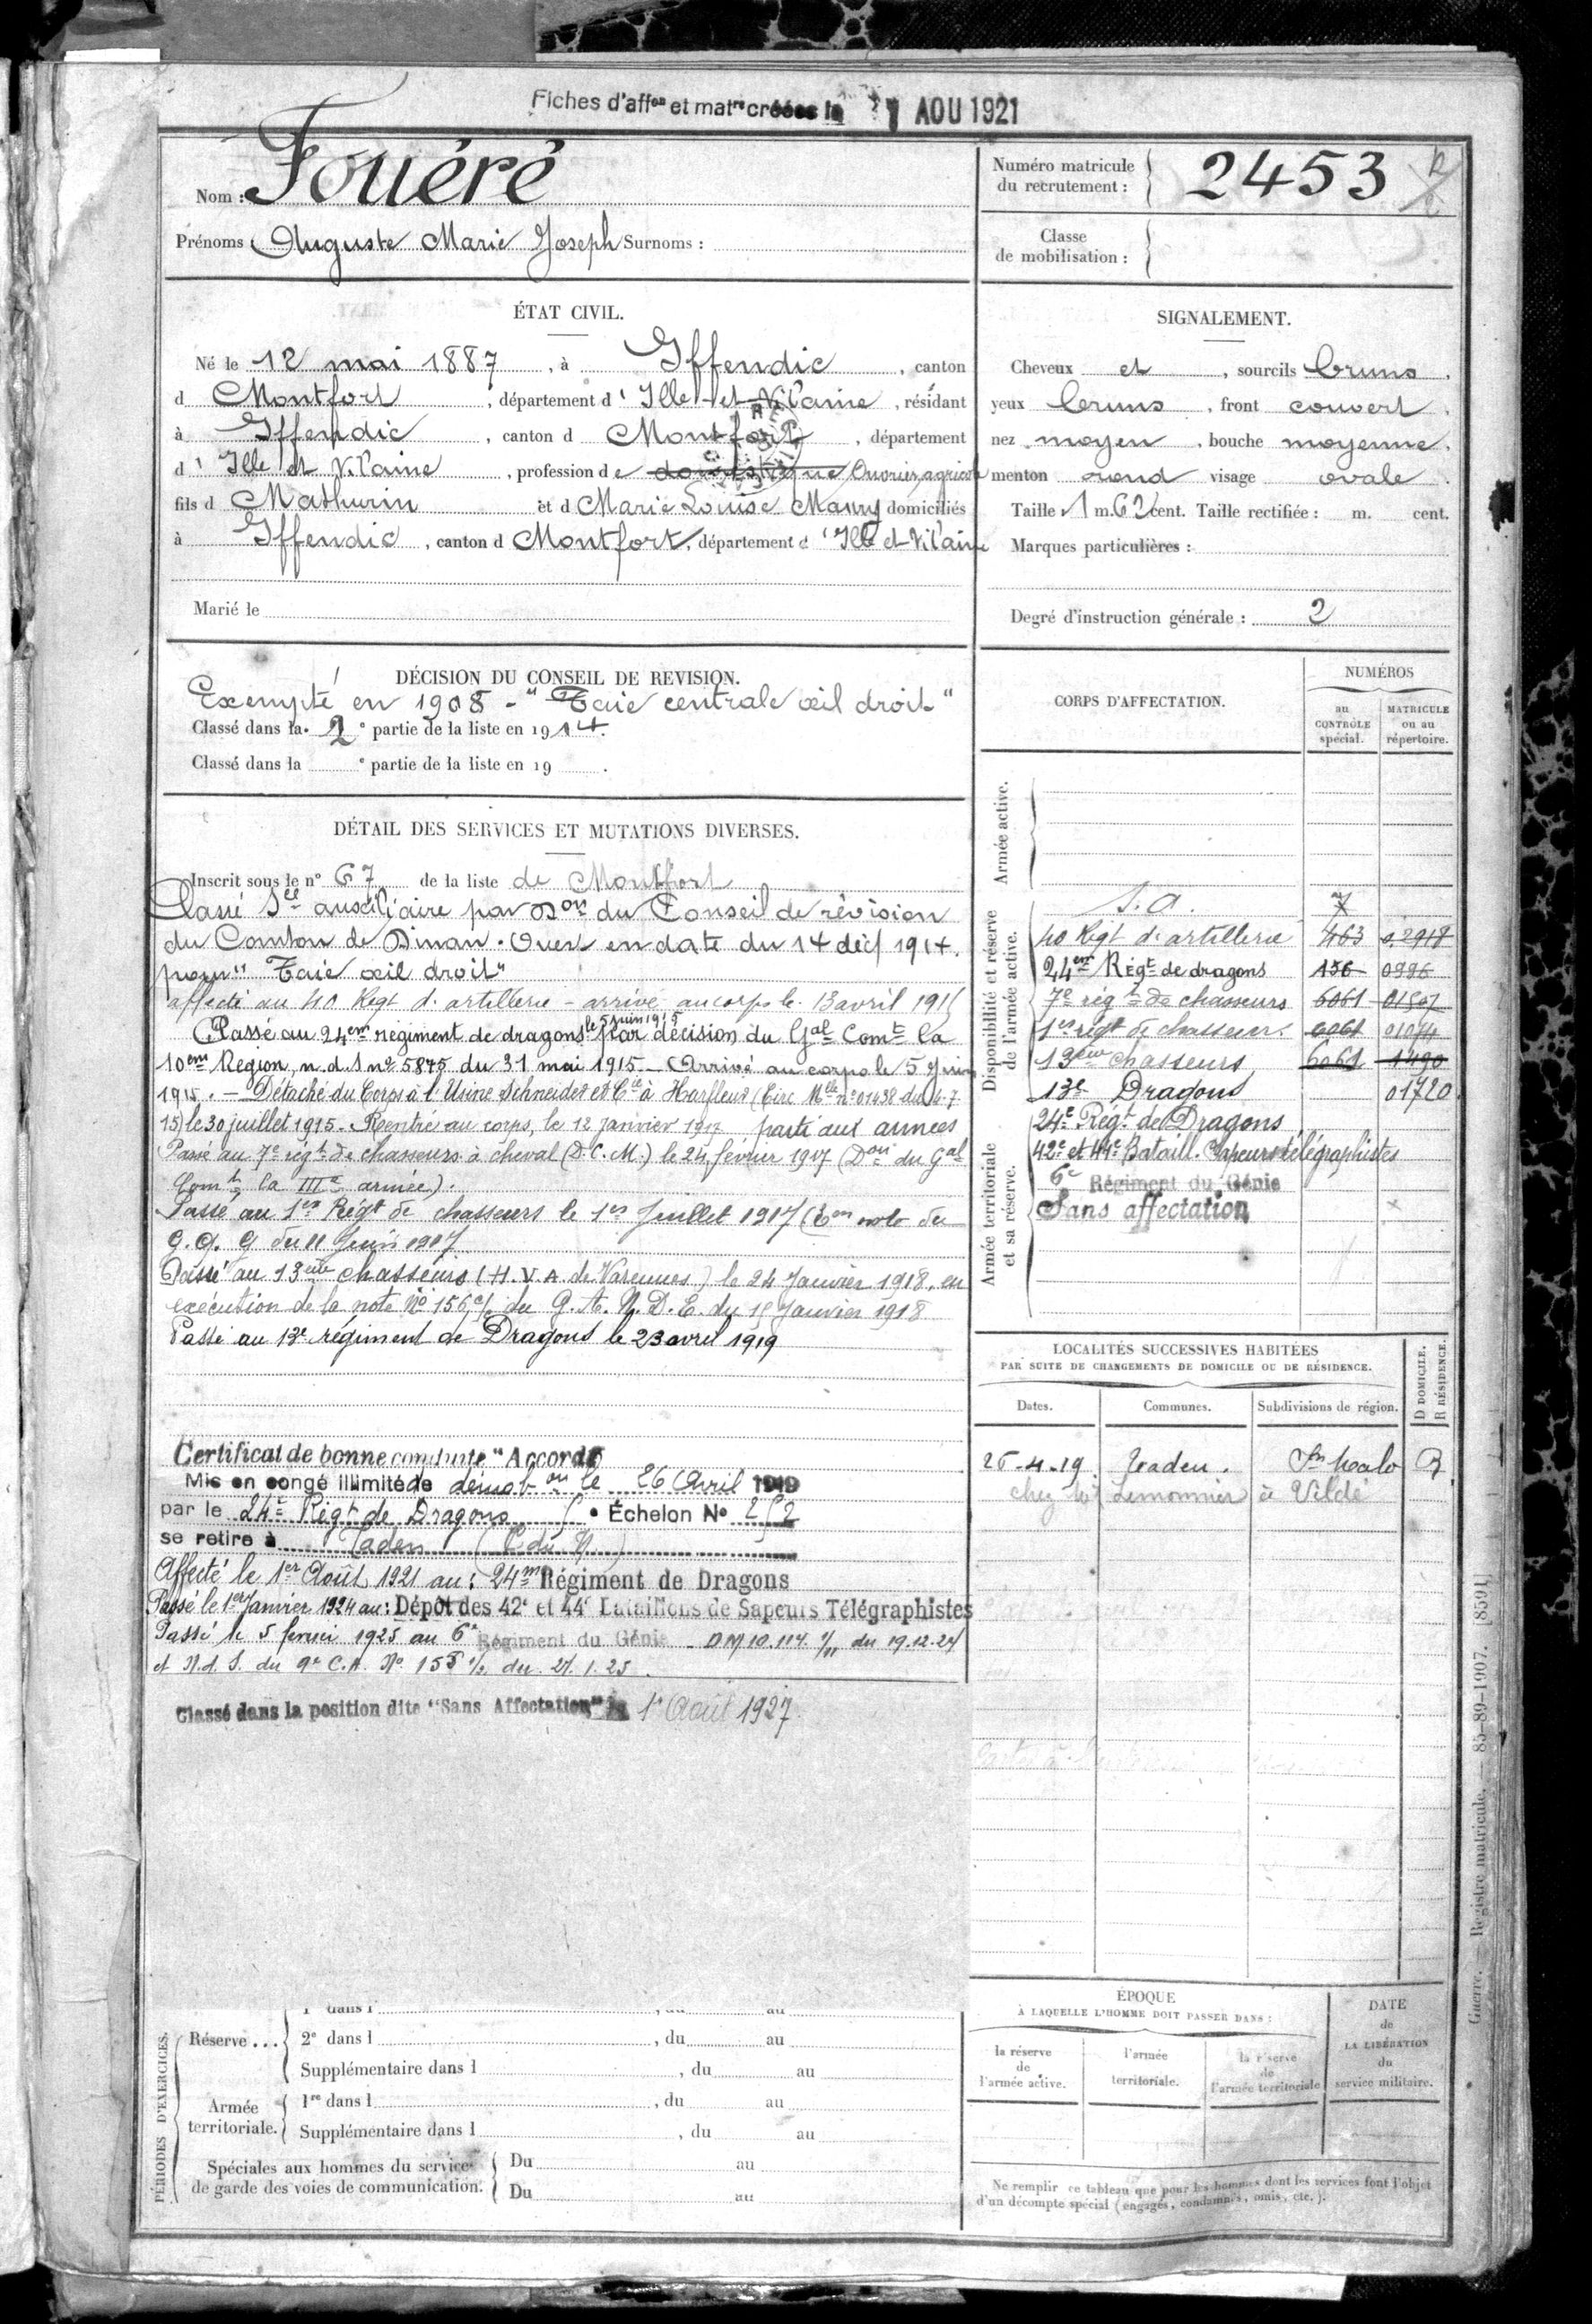 Fiches d'affon et matre créées le 1 AOU 1921
Nom : Fouéré
Prénoms : Auguste Marie Joseph Surnoms :
Numéro matricule du recrutement : 2453
Classe de mobilisation :
ÉTAT CIVIL.
Né le 12 mai 1887, à Iffendic, canton
d Montfort, département d' Ille-et-Vilaine, résidant
à Iffendic, canton d Montfort, département
d' Ille et Vilaine, profession de domestique Ouvrier agricole
fils d Mathurin et d Marie Louise Marny domiciliés
à Iffendic, canton d Montfort, département d' Ille et-Vilaine
Marié le
SIGNALEMENT.
Cheveux et, sourcils bruns,
yeux bruns, front couvert,
nez moyen, bouche moyenne,
menton rond visage ovale.
Taille 1 m. 62 cent. Taille rectifiée : m. cent.
Marques particulières :
Degré d'instruction générale : 2
DÉCISION DU CONSEIL DE REVISION.
Exempté en 1908 - "Taie centrale œil droit"
Classé dans la 2e partie de la liste en 1914.
Classé dans la e partie de la liste en 19 .
DÉTAIL DES SERVICES ET MUTATIONS DIVERSES.
Inscrit sous le n° 67 de la liste de Montfort
Classé Sce auxiliaire par Don du Conseil de révision
du Canton de Dinan-Ouest en date du 14 déc 1914.
pour "Taie œil droit"
affecté au 40 Regt d'artillerie - arrivé au corps le 13 avril 1915
Passé au 24em régiment de dragons le 5 juin 1915 par décision du Gal Comt la
10em Région, n.d.s n° 5875 du 31 mai 1915 - Arrivé au corps le 5 Juin
1915. - Détaché du Corps à l'Usine Schneider et Cie à Harfleur (Circ Mlle n° 01438 du 4-7-
15) le 30 juillet 1915. Rentré au corps, le 12 janvier 1917 parti aux armées
Passé au 7e régt de chasseurs à cheval (D.C.M.) le 24 février 1917 (Don du Gal
Comt la IIIe armée).
Passé au 1er Régt de chasseurs le 1er Juillet 1917 (Con note du
G.Q.G du 11 Juin 1917
Passé au 13eme chasseurs (H.V.A. de Varennes) le 24 Janvier 1918, en
exécution de la note N° 156 c/c du G.A.N.D.E. du 15 Janvier 1918
Passé au 13e régiment de Dragons le 23 avril 1919
Certificat de bonne conduite "Accordé"
Mis en congé illimité de démobon le 26 Avril 1919
par le 24e Régt de Dragons • Échelon N° 252
se retire à Taden (C du N)
Affecté le 1er Août 1921 au : 24me Régiment de Dragons
Passé le 1er Janvier 1924 au : Dépôt des 42e et 44e Bataillons de Sapeurs Télégraphistes
Passé le 5 fevrier 1925 au 6e Régiment du Génie - DM 10.114 1/11 du 19.12.24
et N.d.S. du 9e C.A. N° 155 1/. du 27.1.25.
Classé dans la position dite "Sans Affectation" le 1er Août 1927
CORPS D'AFFECTATION.
NUMÉROS
au CONTRÔLE spécial.
MATRICULE ou au répertoire.
Armée active.
Disponibilité et réserve de l'armée active.
S.A. 7
40 Regt d'artillerie 463 0.2918
24em Régt de dragons 156 0996
7e régt de chasseurs 6061 01507
1er régt de chasseurs 6061 01074
13eme chasseurs 6061 1490
13e Dragons 01720
Armée territoriale et sa réserve.
24e Régt de Dragons
42e et 44e Bataill. Sapeurs télégraphistes
6e Régiment du Génie
Sans affectation
LOCALITÉS SUCCESSIVES HABITÉES
PAR SUITE DE CHANGEMENTS DE DOMICILE OU DE RÉSIDENCE.
Dates. Communes. Subdivisions de région. D DOMICILE. R RÉSIDENCE.
26-4-19. Taden. St Malo R
chez Mr Lemonnier à Vildé
PÉRIODES D'EXERCICES.
Réserve...
2e dans l , du au
Supplémentaire dans l , du au
Armée territoriale.
1re dans l , du au
Supplémentaire dans l , du au
Spéciales aux hommes du service de garde des voies de communication.
Du au
Du au
ÉPOQUE
À LAQUELLE L'HOMME DOIT PASSER DANS :
la réserve de l'armée active.
l'armée territoriale.
la réserve de l'armée territoriale
DATE de LA LIBÉRATION du service militaire.
Ne remplir ce tableau que pour les hommes dont les services font l'objet
d'un décompte spécial (engagés, condamnés, omis, etc.).
Guerre. — Registre matricule. — 85-89-1907. [8591]